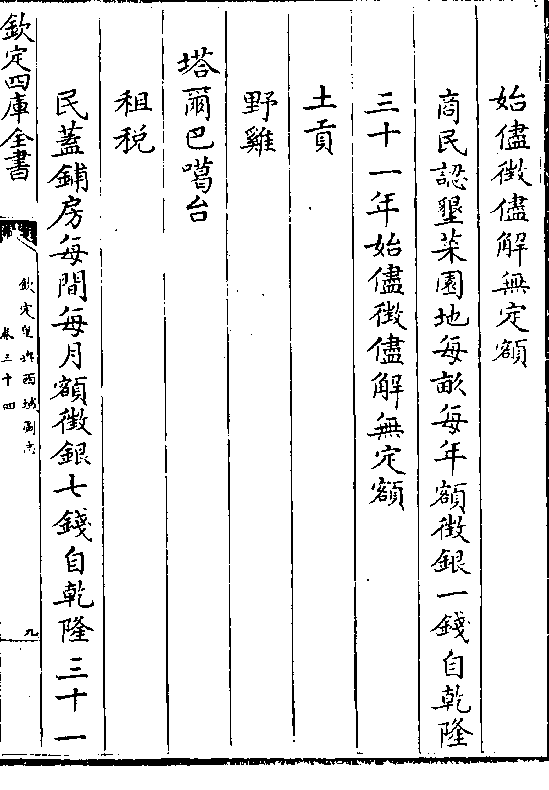 始儘徴儘解無定額
商民認墾菜園地每畝每年額徴銀一錢自乾隆
三十一年始儘徴儘解無定額
土貢
野雞
塔爾巴噶台
租税
民蓋鋪房每間每月額徴銀七錢自乾隆三十一
欽定四庫全書
欽定皇輿西域圖志
卷三十四
九